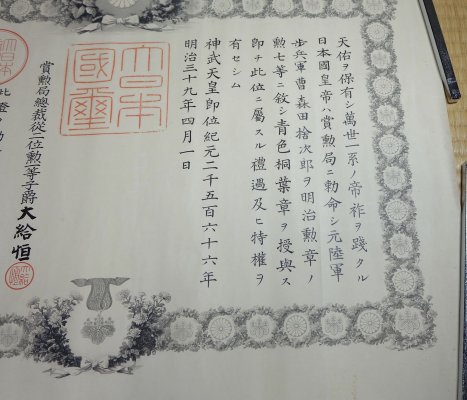 天佑ヲ保有シ萬世一系ノ帝祚ヲ踐タル
日本國皇帝ハ賞勲局ニ勅命シ元陸軍
步兵軍曹森田捨次郎ヲ明治勲章ノ
勲七等ニ敘シ青色桐葉章ヲ授與ス
即チ此位ニ屬スル禮遇及ヒ特權ヲ
有セシム
神武天皇即位紀元二千五百六十六年
明治三十九年四月一日
大日本國璽
賞勲局總裁從二位勲一等子爵大給恒
此證ヲ
大日本